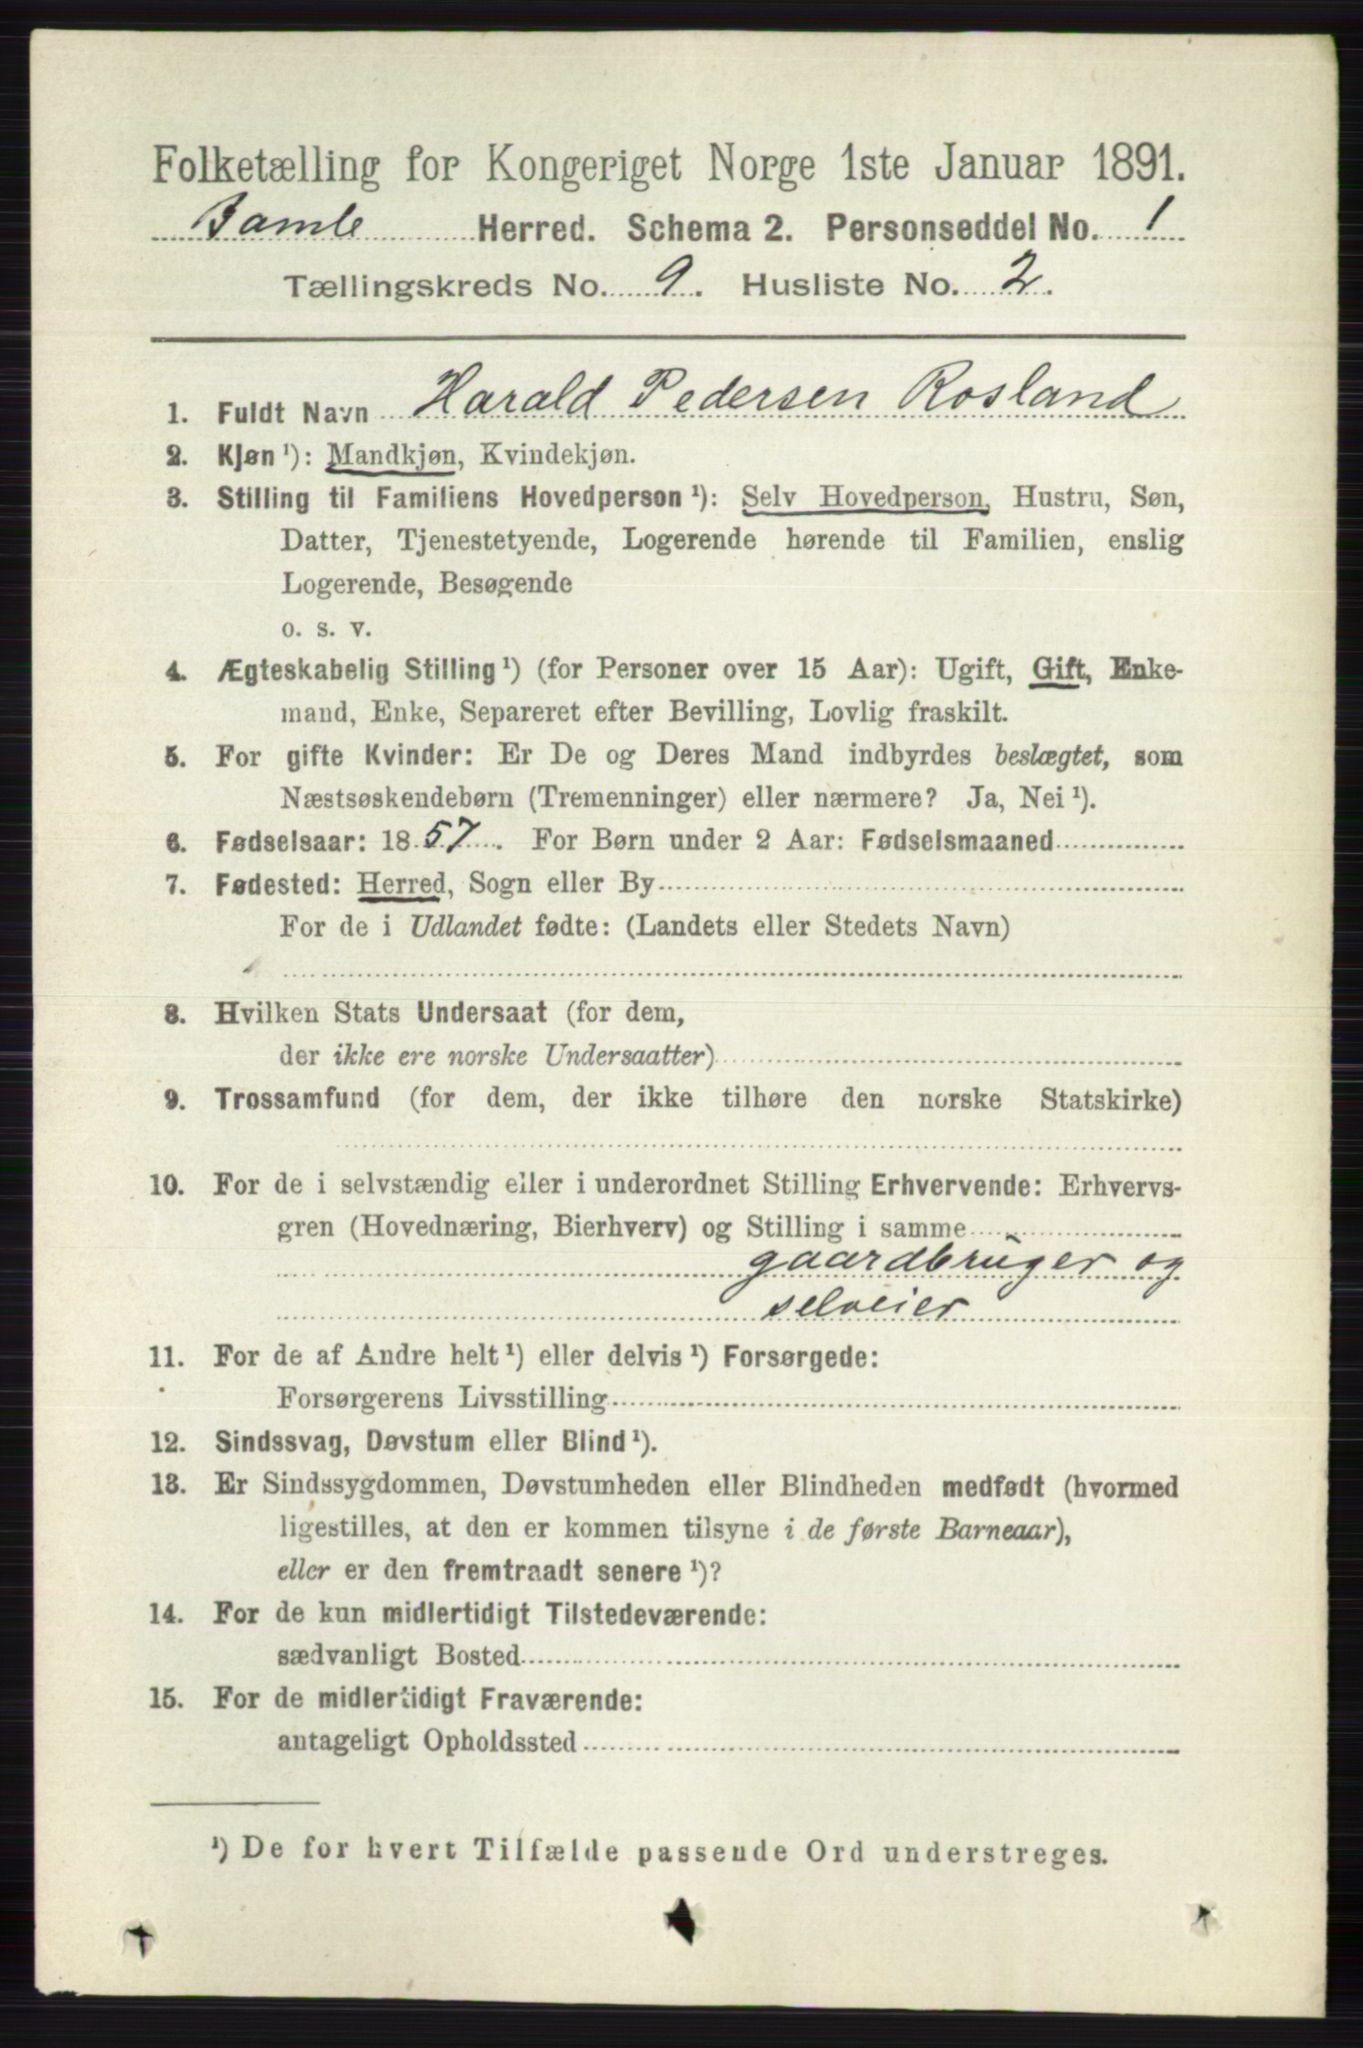 Folketælling for Kongeriget Norge 1ste Januar 1891.
Bamle Herred. Schema 2. Personseddel No. 1
Tællingskreds No. 9. Husliste No. 2.
1. Fuldt Navn Harald Pedersen Rosland
2. Kjøn ¹): Mandkjøn, Kvindekjøn.
3. Stilling til Familiens Hovedperson ¹): Selv Hovedperson, Hustru, Søn,
Datter, Tjenestetyende, Logerende hørende til Familien, enslig
Logerende, Besøgende
o. s. v.
4. Ægteskabelig Stilling ¹) (for Personer over 15 Aar): Ugift, Gift, Enke-
mand, Enke, Separeret efter Bevilling, Lovlig fraskilt.
5. For gifte Kvinder: Er De og Deres Mand indbyrdes beslægtet, som
Næstsøskendebørn (Tremenninger) eller nærmere? Ja, Nei ¹).
6. Fødselsaar: 1857. For Børn under 2 Aar: Fødselsmaaned
7. Fødested: Herred, Sogn eller By
For de i Udlandet fødte: (Landets eller Stedets Navn)
8. Hvilken Stats Undersaat (for dem,
der ikke ere norske Undersaatter)
9. Trossamfund (for dem, der ikke tilhøre den norske Statskirke)
10. For de i selvstændig eller i underordnet Stilling Erhvervende: Erhvervs-
gren (Hovednæring, Bierhverv) og Stilling i samme
gaardbruger og
selveier
11. For de af Andre helt ¹) eller delvis ¹) Forsørgede:
Forsørgerens Livsstilling
12. Sindssvag, Døvstum eller Blind ¹).
13. Er Sindssygdommen, Døvstumheden eller Blindheden medfødt (hvormed
ligestilles, at den er kommen tilsyne i de første Barneaar),
eller er den fremtraadt senere ¹)?
14. For de kun midlertidigt Tilstedeværende:
sædvanligt Bosted
15. For de midlertidigt Fraværende:
antageligt Opholdssted
¹) De for hvert Tilfælde passende Ord understreges.